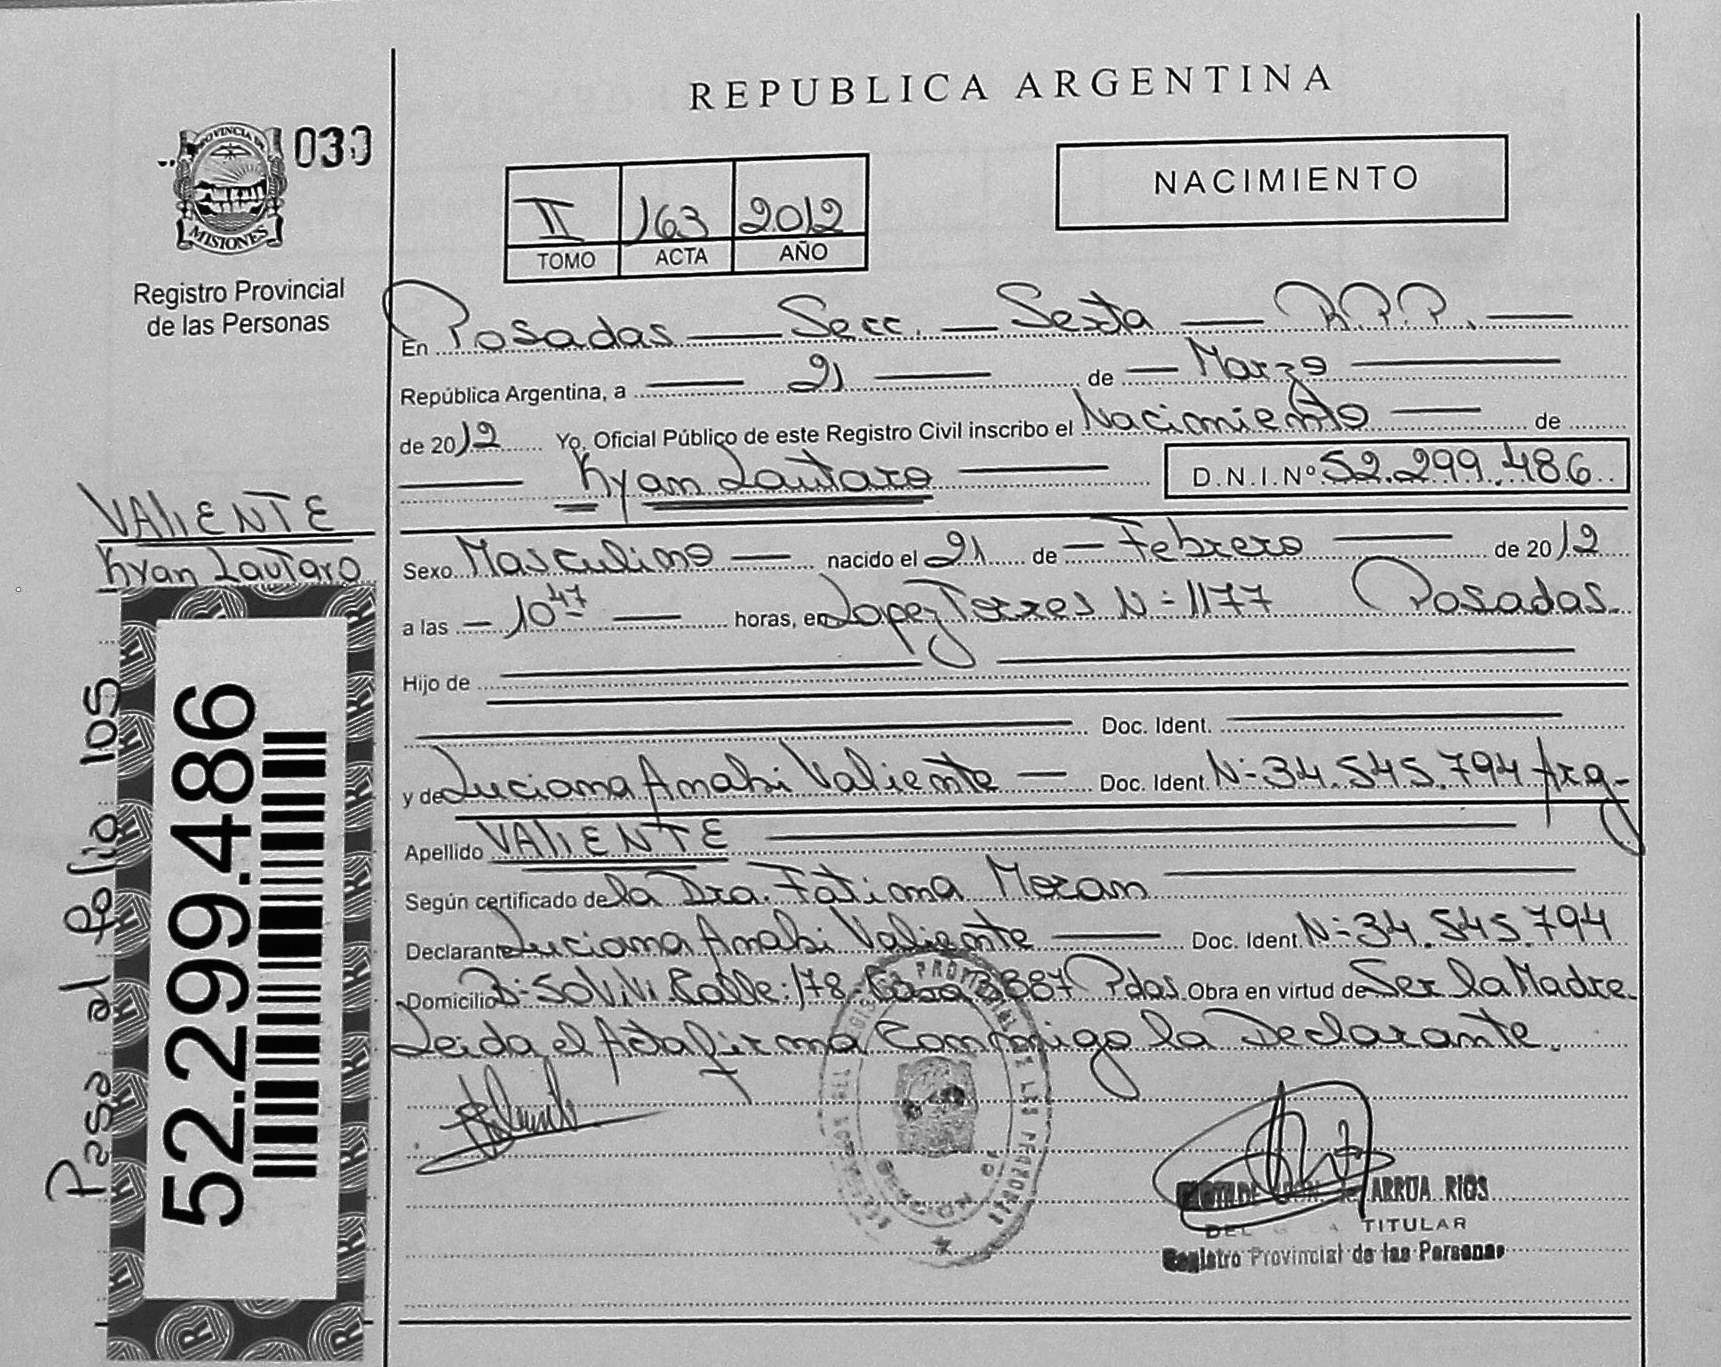 REPUBLICA ARGENTINA
PROVINCIA DE
MISIONES
030
Registro Provincial
de las Personas
NACIMIENTO
II 163 2012
TOMO ACTA AÑO
En Posadas — Secc. — Sexta — R.P.P. —
República Argentina, a — 21 — de — Marzo —
de 2012 Yo, Oficial Público de este Registro Civil inscribo el Nacimiento — de
— Kyan Lautaro — D.N.I.Nº 52.299.486
VALIENTE
Kyan Lautaro
Sexo Masculino — nacido el 21 de — Febrero — de 2012
a las — 10 47 — horas, en Lopez Torres N=1177 Posadas.
Hijo de
Doc. Ident.
y de Luciana Anahi Valiente — Doc. Ident. N=34.545.794 Arg-
Apellido VALIENTE
Según certificado de la Dra. Fatima Moran
Declarante Luciana Anahi Valiente — Doc. Ident. N=34.545.794
Domicilio B=Sol Vivi Calle:178-Casa 3887 Pdas. Obra en virtud de Ser la Madre.
Leida el Acta firma Conmigo la Declarante.
ARRUA RIOS
TITULAR
Registro Provincial de las Personas
52.299.486
Pasa al folio 105